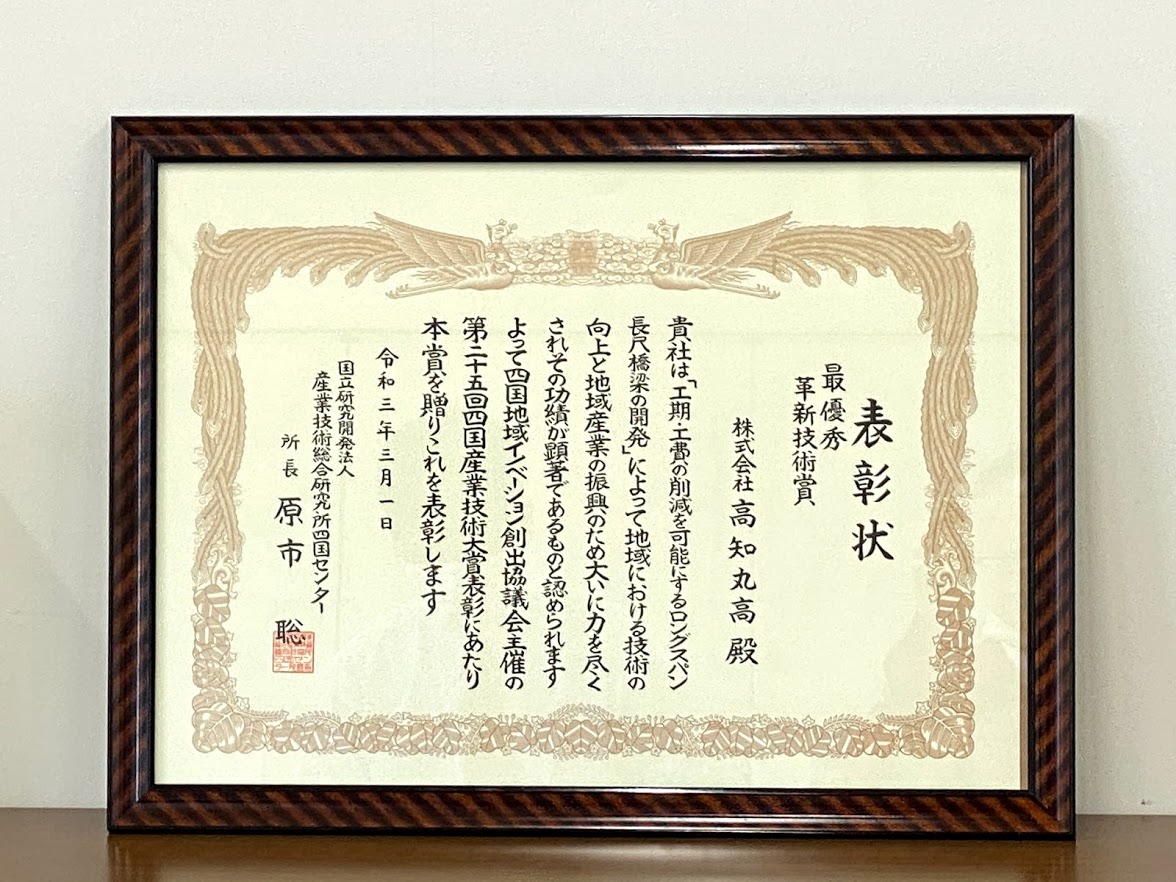 表彰状
最優秀
革新技術賞
株式会社 高知丸高 殿
貴社は「工期・工費の削減を可能にするロングスパン
長尺橋梁の開発」によって地域における技術の
向上と地域産業の振興のため大いに力を尽く
されその功績が顕著であるものと認められます
よって四国地域イノベーション創出協議会主催の
第二十五回四国産業技術大賞表彰にあたり
本賞を贈りこれを表彰します
令和三年三月一日
国立研究開発法人
産業技術総合研究所四国センター
所長 原市 聡